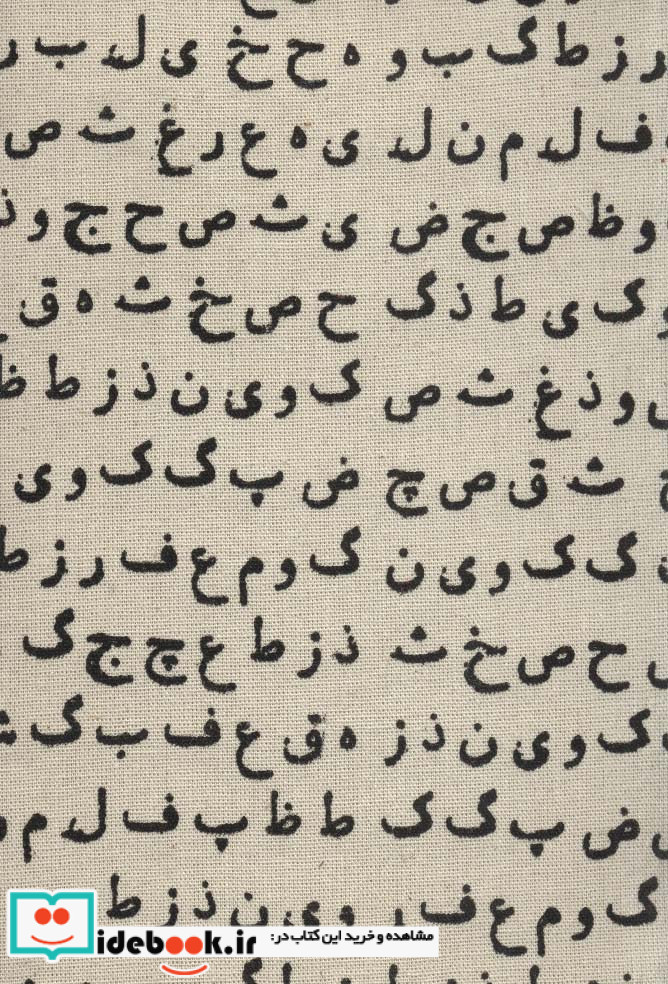 ر ز ط گ ب و ه ح خ ی ل ب ر
ف ل م ن ل ی ه ع ر غ ث ص
و ظ ص ج ض ی ث ص ح ج و ذ
و ک ی ط ذ گ ح ص خ ث ه ق
و ذ غ ث ص ک و ی ن ذ ز ط ظ
ث ق ص چ ض پ گ ک و ی
گ ک و ی ن گ و م ع ف ر ز ط
ح ص خ ث ذ ز ط ع چ ج گ
ک و ی ن ذ ز ه ق ع ف ب گ ش
ض پ گ ک ط ظ پ ف ل م و
گ و م ع ف ر و ی ن ذ ز ط
مشاهده و خرید این کتاب در:
idebook.ir